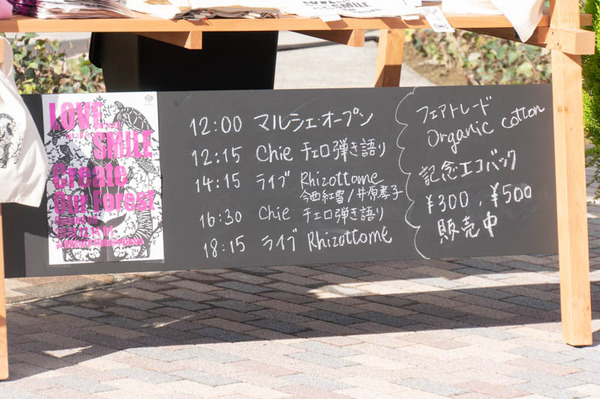 LOVE
SMILE
Create
Our Forest
12:00 マルシェ・オープン
12:15 Chie チェロ弾き語り
14:15 ライブ Rhizottome
今西紅雪/井原季子
16:30 Chie チェロ弾き語り
18:15 ライブ Rhizottome
フェアトレード
Organic cotton
記念エコバック
¥300、¥500
販売中